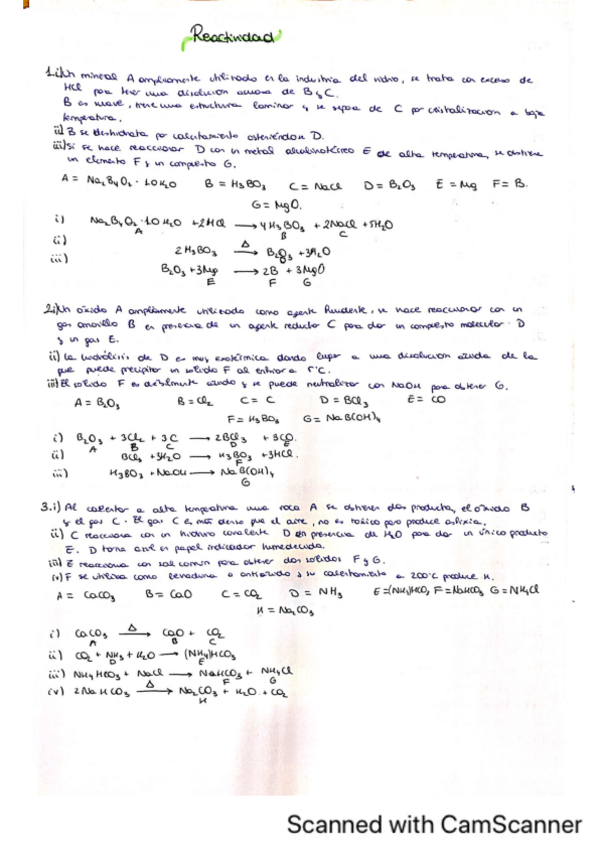 Reactividad
1.i) Un mineral A ampliamente utilizado en la industria del vidrio, se trata con exceso de
HCl para tener una disolución acuosa de B y C.
B es suave, tiene una estructura laminar y se separa de C por cristalización a baja
temperatura.
ii) B se deshidrata por calentamiento obteniéndose D.
iii) Si se hace reaccionar D con un metal alcalinotérreo E de alta temperatura, se obtiene
un elemento F y un compuesto G.
A = Na₂B₄O₇ · 10H₂O B = H₃BO₃ C = NaCl D = B₂O₃ E = Mg F = B.
G = MgO.
i) Na₂B₄O₇ · 10H₂O + 2HCl → 4H₃BO₃ + 2NaCl + 5H₂O
A B C
ii) 2H₃BO₃ Δ→ B₂O₃ + 3H₂O
iii) B₂O₃ + 3Mg → 2B + 3MgO
E F G
2.i) Un óxido A ampliamente utilizado como agente fundente, se hace reaccionar con un
gas amarillo B en presencia de un agente reductor C para dar un compuesto molecular D
y un gas E.
ii) La hidrólisis de D es muy exotérmica dando lugar a una disolución ácida de la
que puede precipitar un sólido F al enfriar a 5°C.
iii) El sólido F es débilmente ácido y se puede neutralizar con NaOH para obtener G.
A = B₂O₃ B = Cl₂ C = C D = BCl₃ E = CO
F = H₃BO₃ G = NaB(OH)₄
i) B₂O₃ + 3Cl₂ + 3C → 2BCl₃ + 3CO.
A B C D E
ii) BCl₃ + 3H₂O → H₃BO₃ + 3HCl.
F
iii) H₃BO₃ + NaOH → NaB(OH)₄
G
3.i) Al calentar a alta temperatura una roca A se obtienen dos productos, el óxido B
y el gas C. El gas C es más denso que el aire, no es tóxico pero produce asfixia.
ii) C reacciona con un hidruro covalente D en presencia de H₂O para dar un único producto
E. D torna azul en papel indicador humedecido.
iii) E reacciona con sal común para obtener dos sólidos F y G.
iv) F se utiliza como levadura o antiácido y su calentamiento a 200°C produce H.
A = CaCO₃ B = CaO C = CO₂ D = NH₃ E = (NH₄)HCO₃ F = NaHCO₃ G = NH₄Cl
H = Na₂CO₃
i) CaCO₃ Δ→ CaO + CO₂
A B C
ii) CO₂ + NH₃ + H₂O → (NH₄)HCO₃
D E
iii) NH₄HCO₃ + NaCl → NaHCO₃ + NH₄Cl
F G
iv) 2NaHCO₃ Δ→ Na₂CO₃ + H₂O + CO₂
H
Scanned with CamScanner